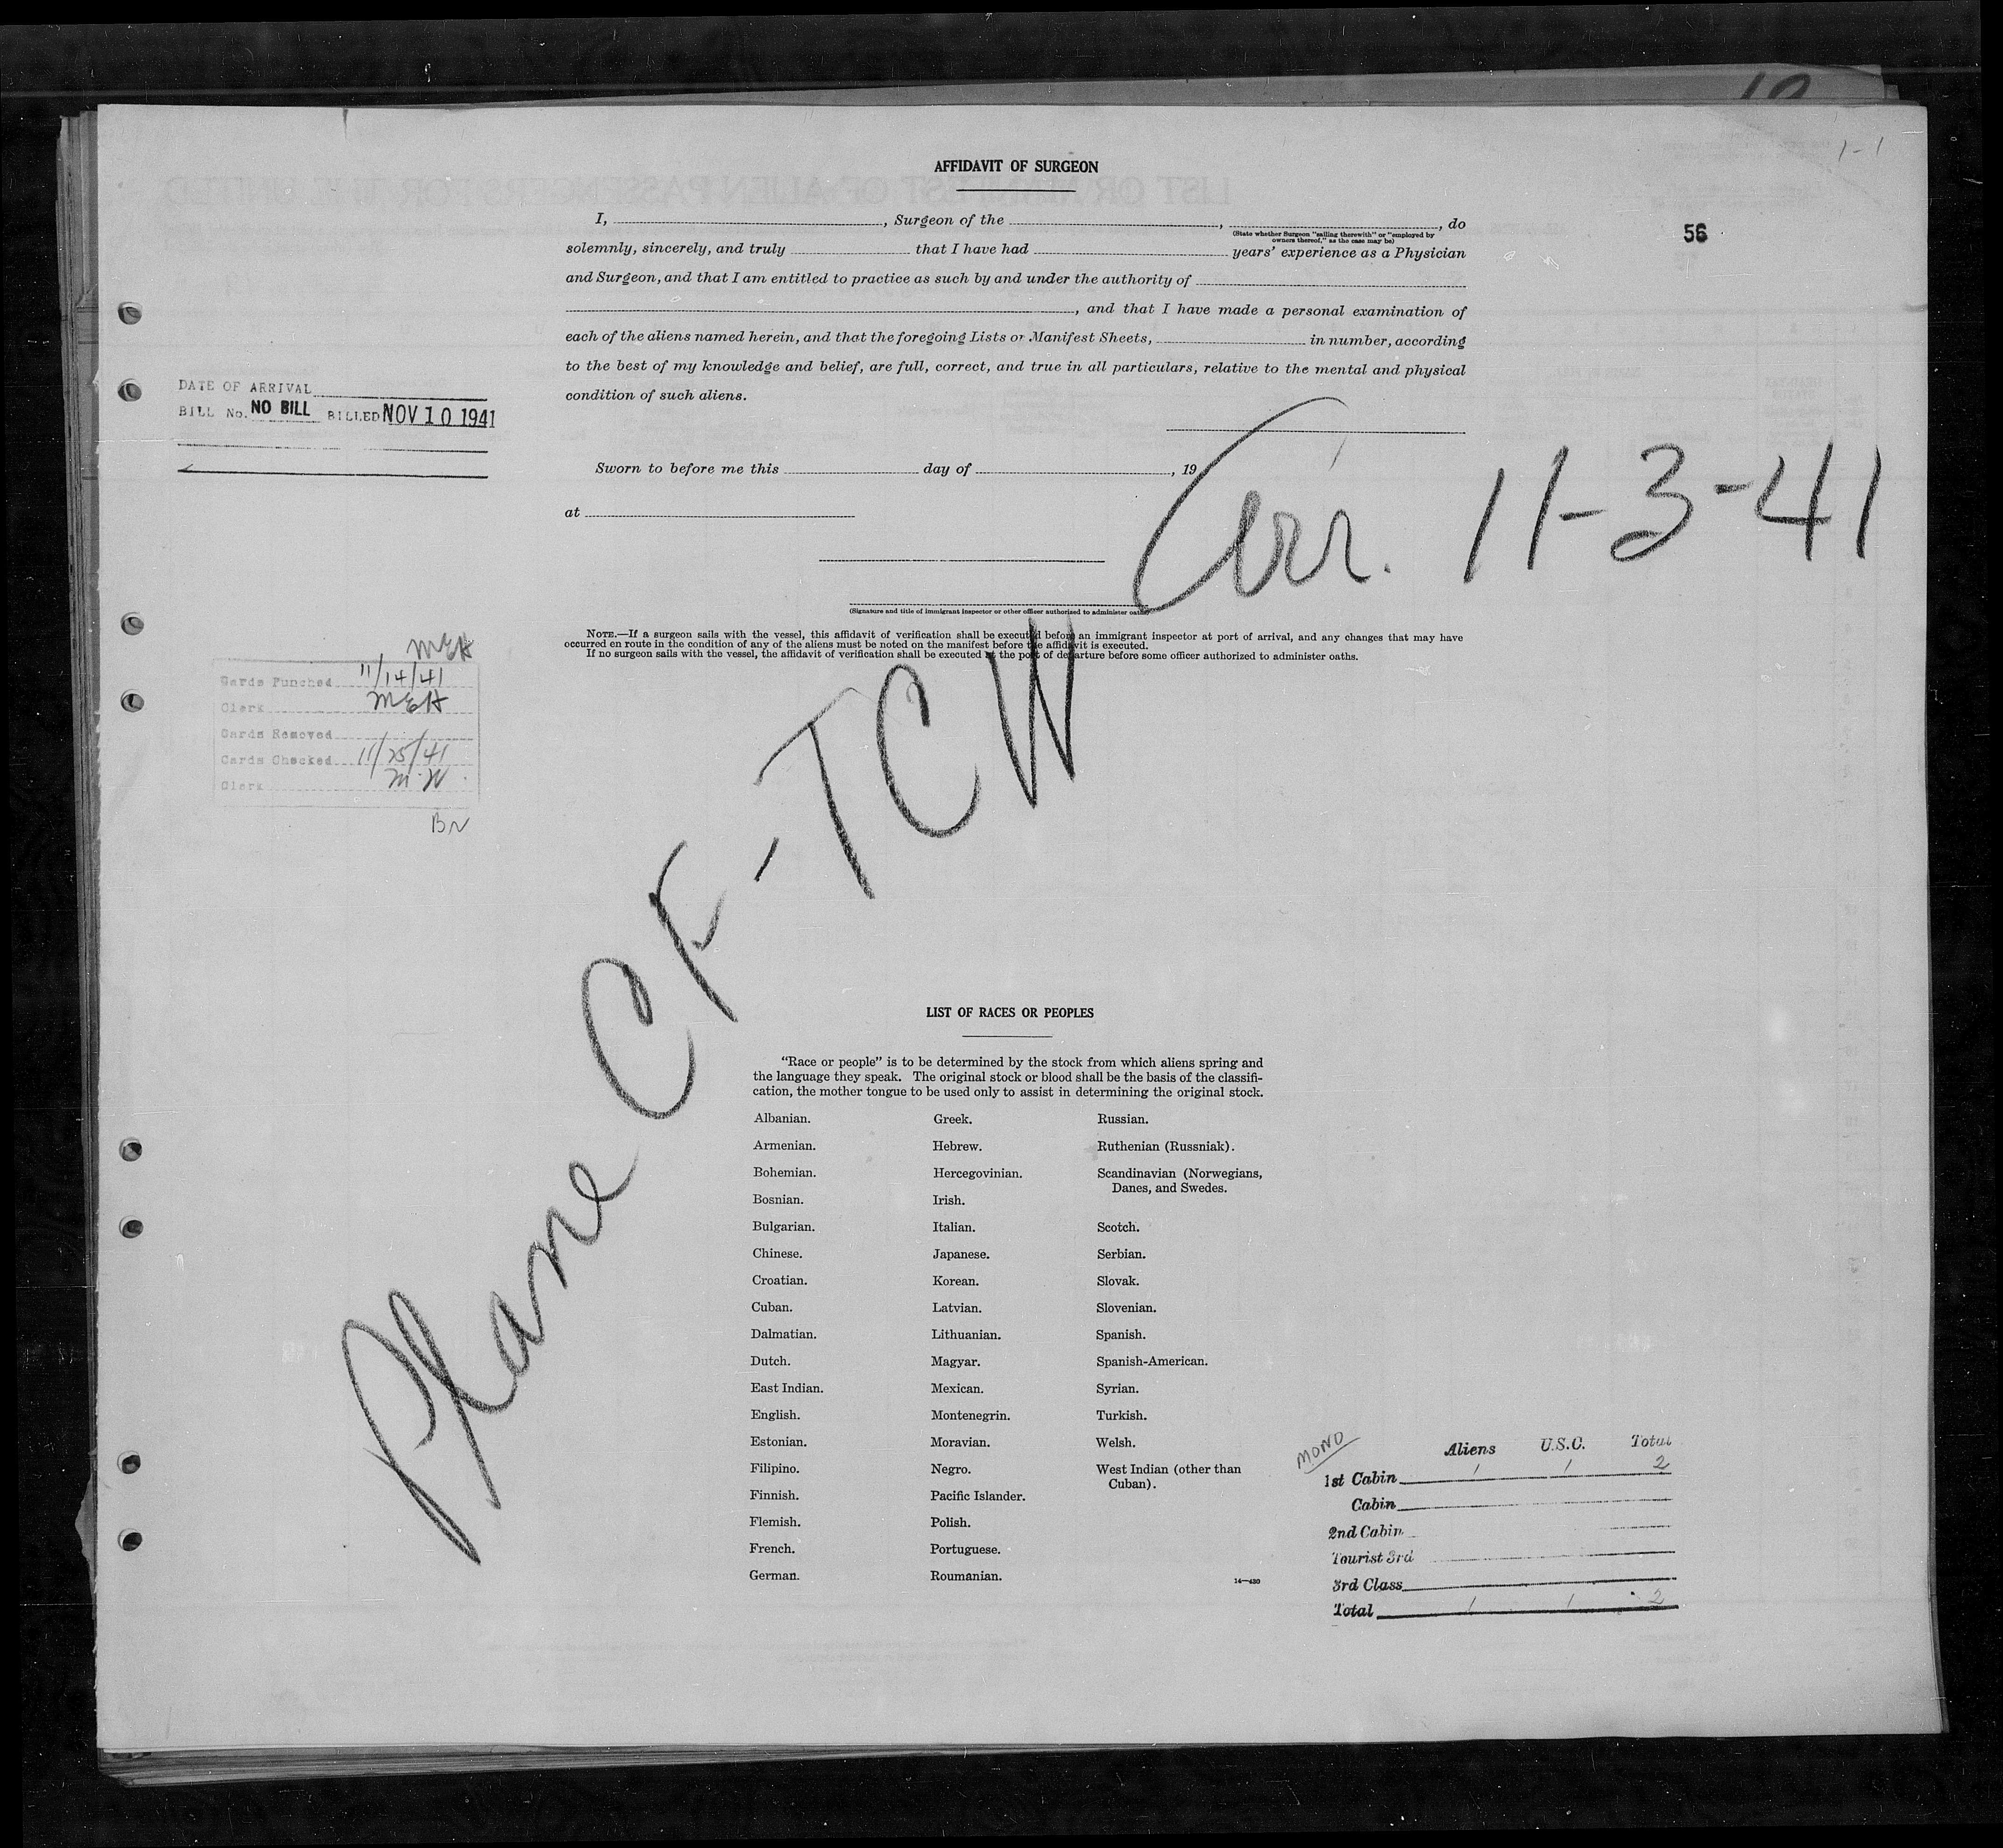 1-1
56
AFFIDAVIT OF SURGEON
I, , Surgeon of the , , do
(State whether Surgeon "sailing therewith" or "employed by
owners thereof," as the case may be)
solemnly, sincerely, and truly that I have had years' experience as a Physician
and Surgeon, and that I am entitled to practice as such by and under the authority of
, and that I have made a personal examination of
each of the aliens named herein, and that the foregoing Lists or Manifest Sheets, in number, according
to the best of my knowledge and belief, are full, correct, and true in all particulars, relative to the mental and physical
condition of such aliens.
DATE OF ARRIVAL
BILL No. NO BILL BILLED NOV 10 1941
Sworn to before me this day of , 19
at
Arr. 11-3-41
(Signature and title of immigrant inspector or other officer authorized to administer oaths)
NOTE.—If a surgeon sails with the vessel, this affidavit of verification shall be executed before an immigrant inspector at port of arrival, and any changes that may have
occurred en route in the condition of any of the aliens must be noted on the manifest before the affidavit is executed.
If no surgeon sails with the vessel, the affidavit of verification shall be executed at the port of departure before some officer authorized to administer oaths.
MEH
Cards Punched 11/14/41
Clerk MEH
Cards Removed
Cards Checked 11/25/41
Clerk M.W.
BN
Plane CF-TCW
LIST OF RACES OR PEOPLES
"Race or people" is to be determined by the stock from which aliens spring and
the language they speak. The original stock or blood shall be the basis of the classifi-
cation, the mother tongue to be used only to assist in determining the original stock.
Albanian.
Armenian.
Bohemian.
Bosnian.
Bulgarian.
Chinese.
Croatian.
Cuban.
Dalmatian.
Dutch.
East Indian.
English.
Estonian.
Filipino.
Finnish.
Flemish.
French.
German.
Greek.
Hebrew.
Hercegovinian.
Irish.
Italian.
Japanese.
Korean.
Latvian.
Lithuanian.
Magyar.
Mexican.
Montenegrin.
Moravian.
Negro.
Pacific Islander.
Polish.
Portuguese.
Roumanian.
Russian.
Ruthenian (Russniak).
Scandinavian (Norwegians,
Danes, and Swedes.
Scotch.
Serbian.
Slovak.
Slovenian.
Spanish.
Spanish-American.
Syrian.
Turkish.
Welsh.
West Indian (other than
Cuban).
14—430
MONO
Aliens U.S.C. Total
1st Cabin 1 1 2
Cabin
2nd Cabin
Tourist 3rd
3rd Class
Total 1 1 2